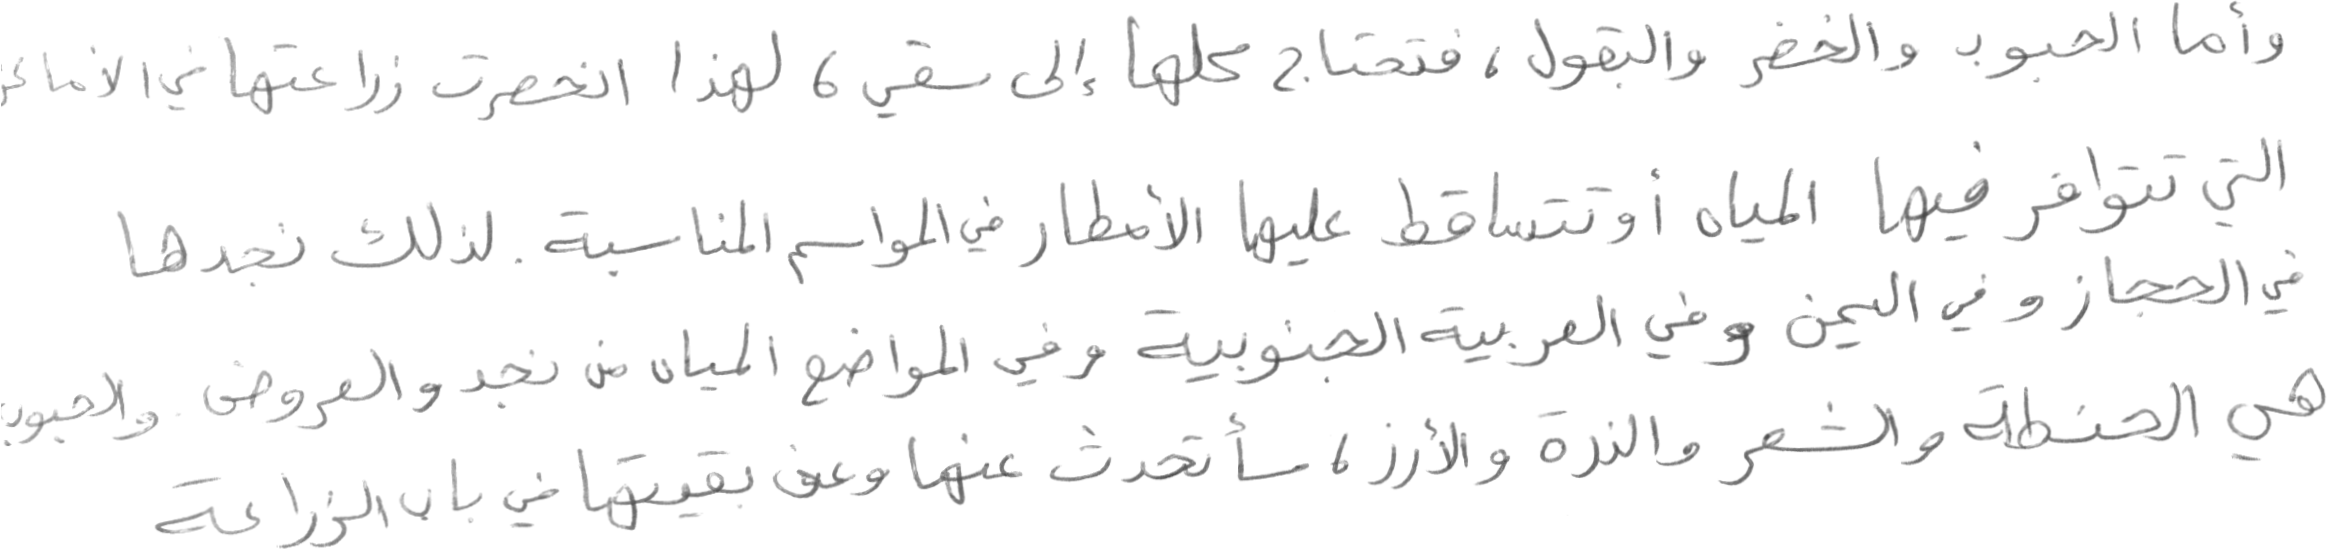 وأما الحبوب والخضر والبقول، فتحتاج كلها إلى سقي، لهذا انحصرت زراعتها في الأماكن
التي تتوافر فيها المياه أو تتساقط عليها الأمطار في المواسم المناسبة. لذلك نجدها
في الحجاز وفي اليمن وفي العربية الجنوبية وفي المواضع المياه من نجد والعروض. والحبوب
هي الحنطة والشعر والذرة والأرز، سأتحدث عنها وعن بقيتها في باب الزراعة